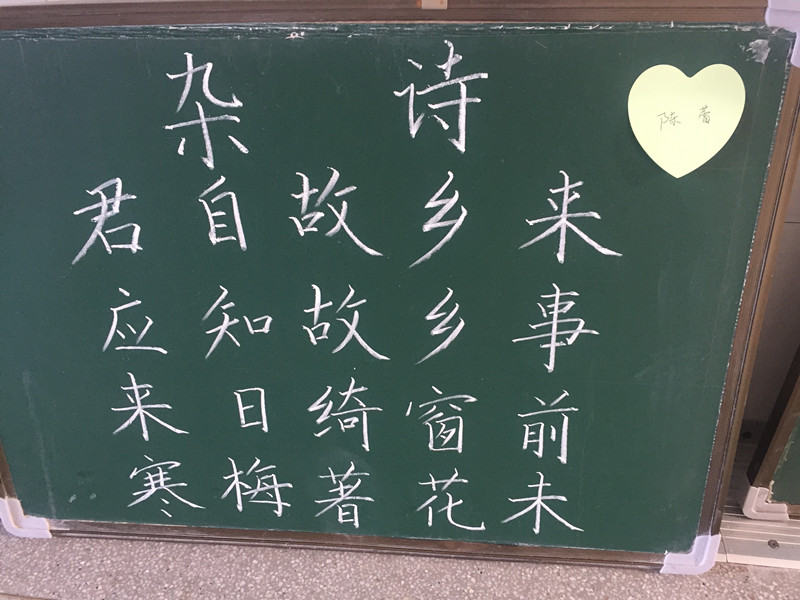 杂诗
陈蕾
君自故乡来
应知故乡事
来日绮窗前
寒梅著花未